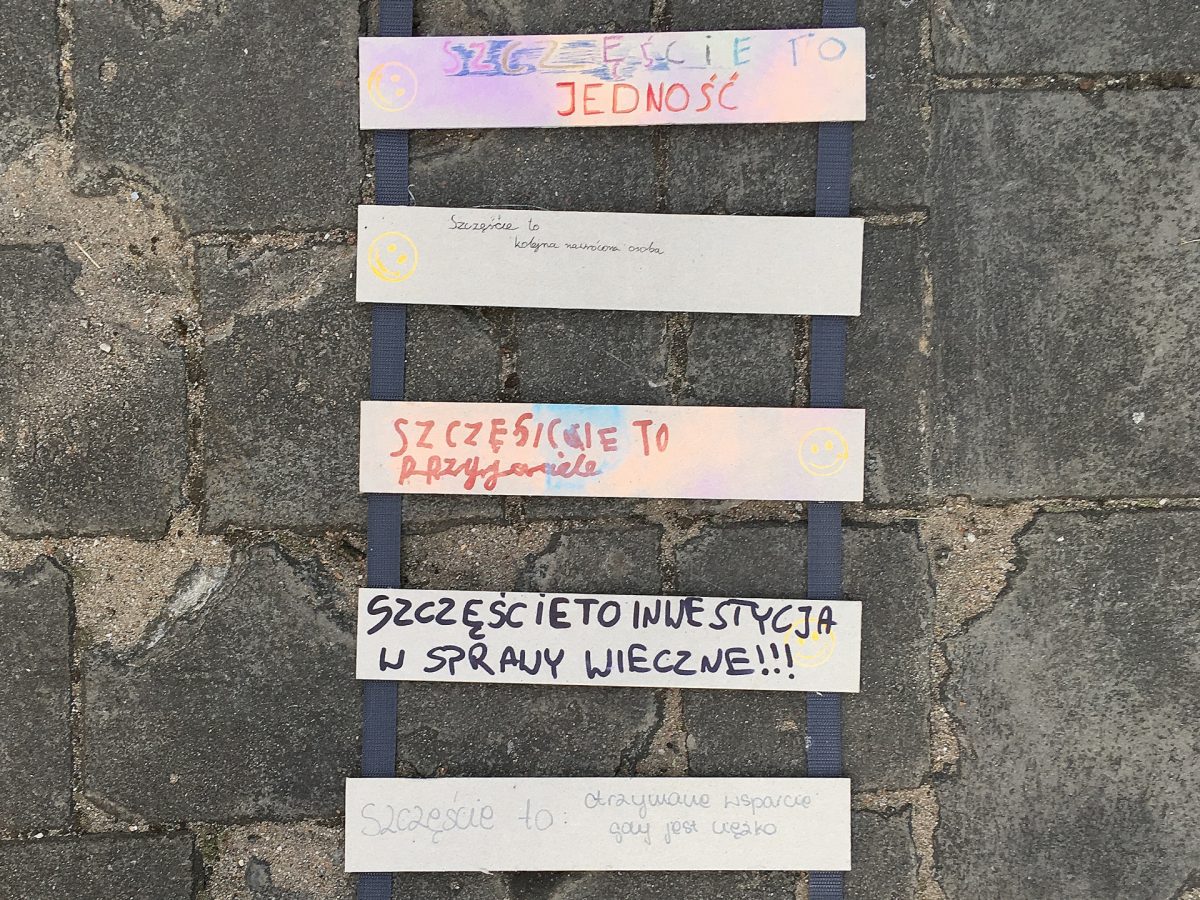 SZCZĘŚCIE TO
JEDNOŚĆ
Szczęśćie to
kolejna nawrócona osoba
SZCZĘŚICIE TO
przyjaciele
SZCZĘŚCIE TO INWESTYCJA
W SPRAWY WIECZNE!!!
Szczęście to: otrzymane wsparcie
gdy jest ciężko